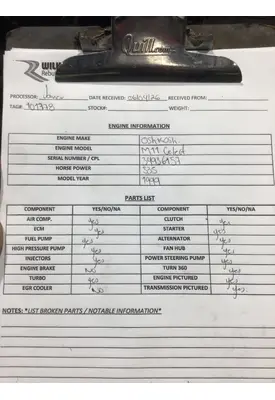 Quill.com
WILK
Rebu
PROCESSOR: DATE RECEIVED: RECEIVED FROM:
TAG#: 901778 STOCK#: WEIGHT:
ENGINE INFORMATION
ENGINE MAKE Oshkosh
ENGINE MODEL M11 Celect
SERIAL NUMBER / CPL
HORSE POWER 335
MODEL YEAR 1999
PARTS LIST
COMPONENT YES/NO/NA COMPONENT YES/NO/NA
AIR COMP. yes CLUTCH yes
ECM yes STARTER yes
FUEL PUMP yes ALTERNATOR yes
HIGH PRESSURE PUMP yes FAN HUB yes
INJECTORS yes POWER STEERING PUMP yes
ENGINE BRAKE NO TURN 360 yes
TURBO yes ENGINE PICTURED yes
EGR COOLER NO TRANSMISSION PICTURED yes
NOTES: *LIST BROKEN PARTS / NOTABLE INFORMATION*